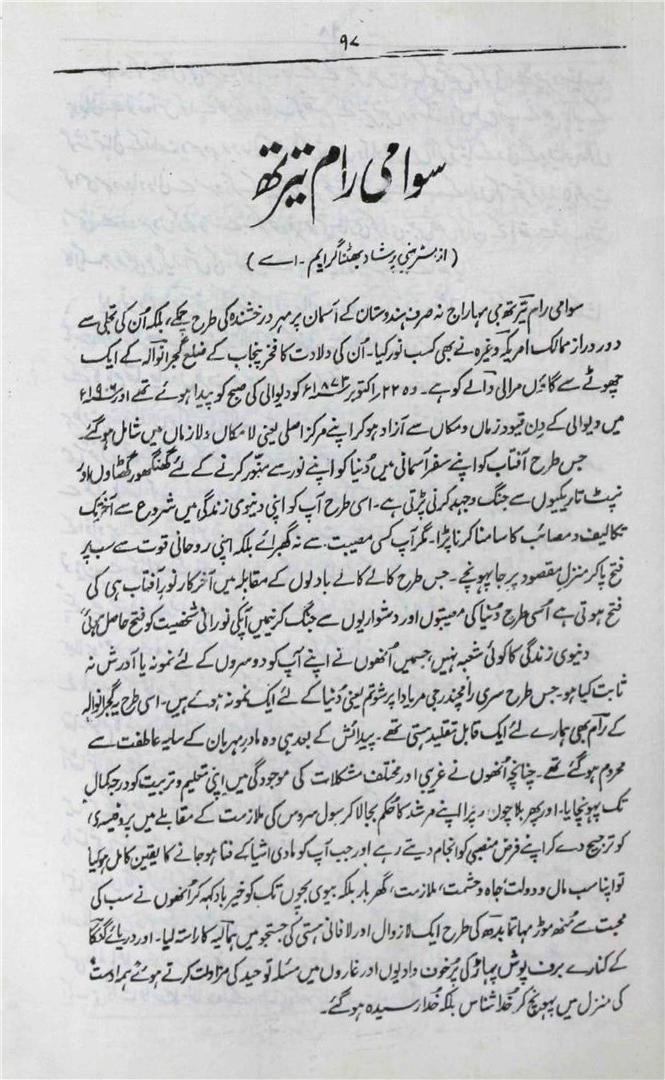 ۹۷
سوامی رام تیرتھ
( از مسٹر بنی پرشاد بھٹناگر ایم - اے )
سوامی رام تیرتھ جی مہاراج نہ صرف ہندوستان کے آسمان پر مہر درخشندہ کی طرح چمکے، بلکہ اُن کی تجلی سے
دور دراز ممالک امریکہ وغیرہ نے بھی کسب نور کیا۔ اُن کی ولادت کا فخر پنجاب کے ضلع گجرانوالہ کے ایک
چھوٹے سے گاؤں مرالی والے کو ہے۔ وہ ۲۲ اکتوبر ۱۸۷۳ء کو دیوالی کی صبح کو پیدا ہوئے تھے اور ۱۹۰۶ء
میں دیوالی کے دِن قیود زماں و مکاں سے آزاد ہو کر اپنے مرکز اصلی یعنی لامکاں و لازماں میں شامل ہو گئے۔
جس طرح آفتاب کو اپنے سفر آسمانی میں دُنیا کو اپنے نور سے منوّر کرنے کے لئے گھنگھور گھٹاؤں اور
نپٹ تاریکیوں سے جنگ و جہد کرنی پڑتی ہے۔ اسی طرح آپ کو اپنی دنیوی زندگی میں شروع سے آخر تک
تکالیف و مصائب کا سامنا کرنا پڑا۔ مگر آپ کسی مصیبت سے نہ گھبرائے بلکہ اپنی روحانی قوت سے سب پر
فتح پا کر منزلِ مقصود پر جا پہونچے۔ جس طرح کالے کالے بادلوں کے مقابلہ میں آخر کار نورِ آفتاب ہی کی
فتح ہوتی ہے اُسی طرح دُنیا کی مصیبتوں اور دشواریوں سے جنگ کرنیمیں آپکی نورانی شخصیت کو فتح حاصل ہوئی
دنیوی زندگی کا کوئی شعبہ نہیں، جسمیں اُنھوں نے اپنے آپ کو دوسروں کے لئے نمونہ یا آدرش نہ
ثابت کیا ہو۔ جس طرح سری رامچندر جی مریادا پرشوتم یعنی دُنیا کے لئے ایک نمونہ ہوئے ہیں۔ اسی طرح یہ گجرانوالہ
کے رام بھی ہمارے لئے ایک قابل تقلید ہستی تھے۔ پیدائش کے بعد ہی وہ مادرِ مہربان کے سایہ عاطفت سے
محروم ہو گئے تھے۔ چنانچہ اُنھوں نے غریبی اور مختلف مشکلات کی موجودگی میں اپنی تعلیم و تربیت کو درجۂ کمال
تک پہونچایا۔ اور پھر بلا چون و چرا اپنے مرشد کا حکم بجا لا کر سول سروس کی ملازمت کے مقابلے میں پروفیسری
کو ترجیح دے کر اپنے فرض منصبی کو انجام دیتے رہے اور جب آپ کو مادی اشیا کے فنا ہو جانے کا یقین کامل ہو گیا
تو اپنا سب مال و دولت، جاہ و حشمت، ملازمت، گھر بار بلکہ بیوی بچّوں تک کو خیر باد کہہ کر اُنھوں نے سب کی
محبت سے منھ موڑ مہاتما بدھ کی طرح ایک لازوال اور لافانی ہستی کی جستجو میں ہمالیہ کا راستہ لیا۔ اور دریائے گنگا
کے کنارے برف پوش پہاڑ کی پُر خوف وادیوں اور غاروں میں مسئلہ توحید کی مزاولت کرتے ہوئے ہمہ اوست
کی منزل میں پہونچ کر خُدا شناس بلکہ خُدا رسیدہ ہو گئے۔